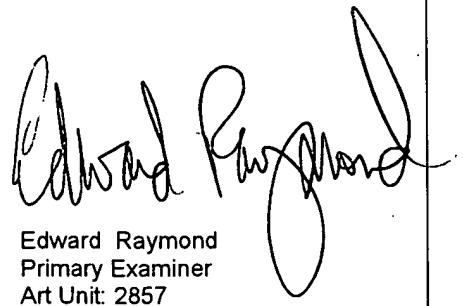 Edward Raymond
Edward Raymond
Primary Examiner
Art Unit: 2857